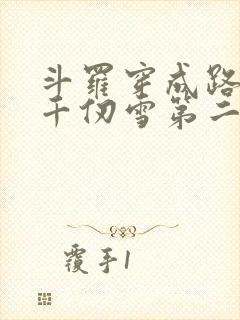 斗羅穿成路
千仞雪第二
覆手1